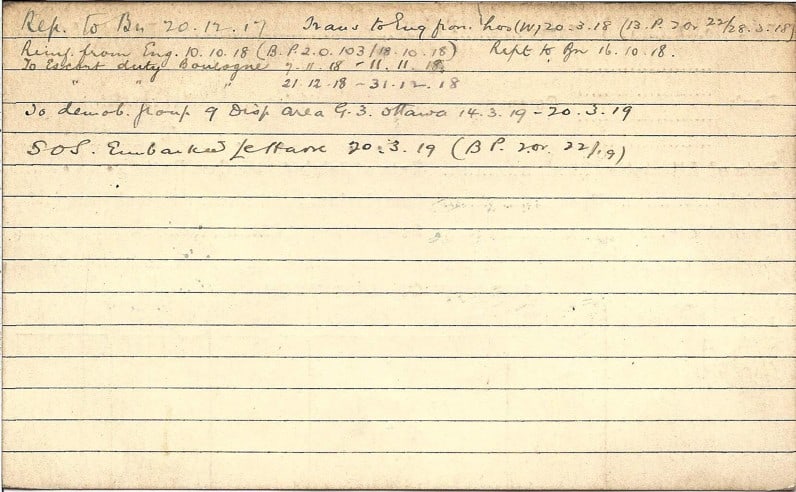 Rep. to Bn 20.12.17 Trans to Eng from hos (W) 20.3.18 (B.P. 2 Or 22/28.3.18)
Reinf. from Eng. 10.10.18 (B.P.2.O. 103/18.10.18) Rept to Bn 16.10.18.
To Escort duty Boulogne 7.11.18 - 11.11.18
" " " 21.12.18 - 31.12.18
To demob. group 9 Disp area G.3. Ottawa 14.3.19 - 20.3.19
SOS. Embarked Le Havre 20.3.19 (B P. 2 Or. 22/19)